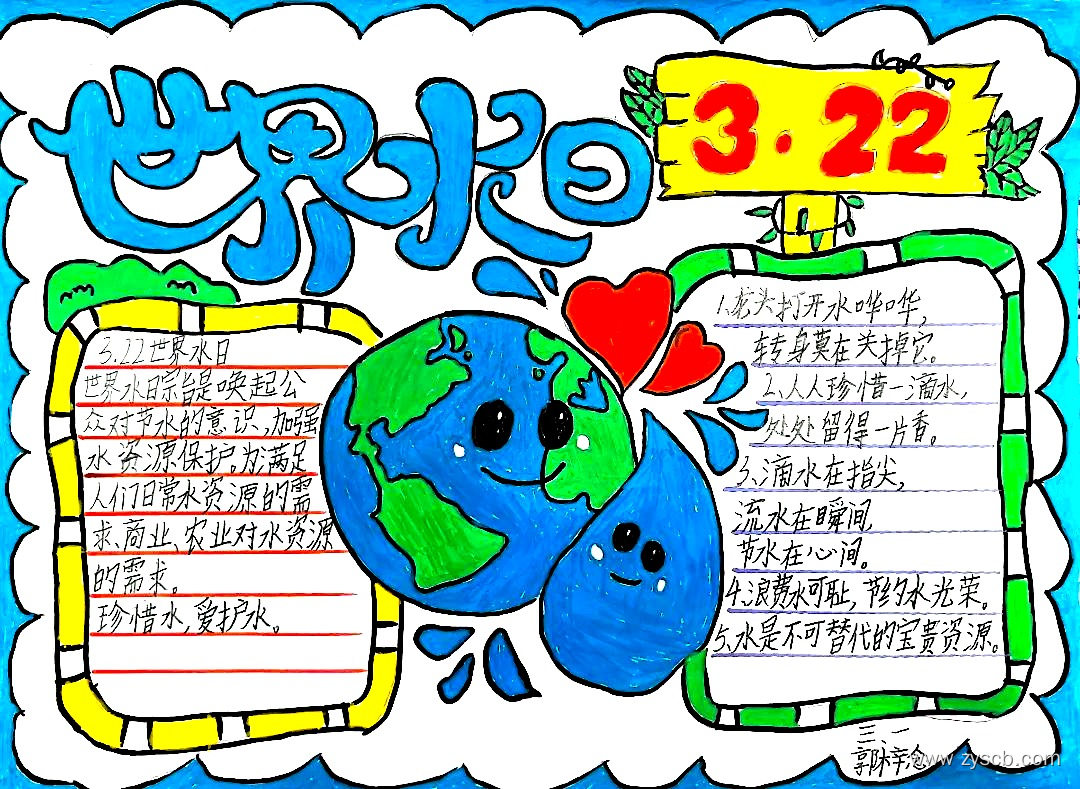 世界水日
3.22
3.22世界水日
世界水日宗旨是唤起公
众对节水的意识,加强
水资源保护。为满足
人们日常水资源的需
求、商业、农业对水资源
的需求。
珍惜水,爱护水。
1.龙头打开水哗哗,
转身莫在关掉它。
2.人人珍惜一滴水,
处处留得一片香。
3.滴水在指尖,
流水在瞬间,
节水在心间。
4.浪费水可耻,节约水光荣。
5.水是不可替代的宝贵资源。
三、一
www.zyscb.com